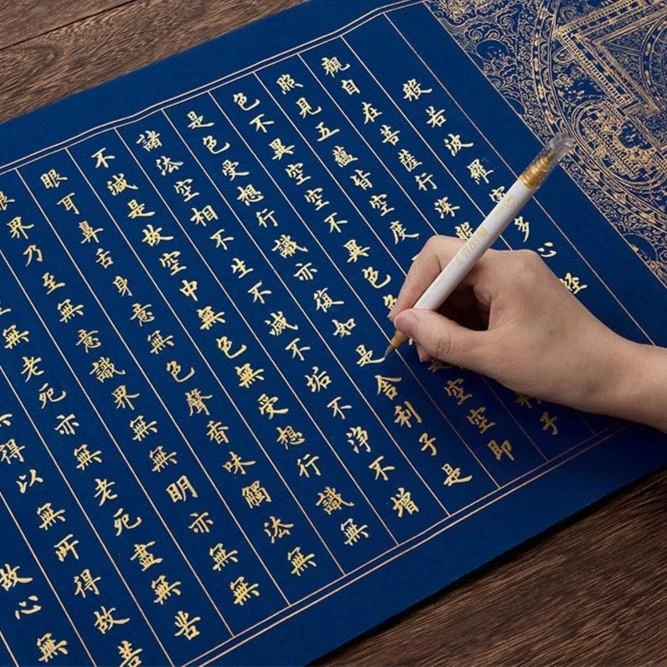 般若波羅多心經
觀自在菩薩行深子
照見五蘊皆空度
色不異空空不異色色是空空即
是色受想行識亦復如是舍利子是
諸法空相不生不滅不垢不淨不增
不減是故空中無色無受想行識無
眼耳鼻舌身意無色聲香味觸法無
眼界乃至無意識界無無明亦無無
無老死亦無老死盡無苦
得以無所得故菩
故心無